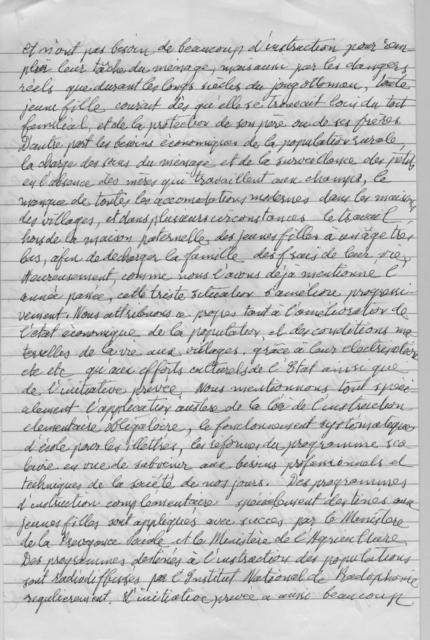 et n'ont pas besoin de beaucoup d'instruction pour rem-
plir leur tâche du ménage, mais aussi par les dangers
réels que durant les longs siècles du joug ottoman, toute
jeune fille courait dès qu'elle se trouvait loin du toit
familial, et de la protection de son père ou de ses frères
D'autre part les besoins économiques de la population rurale
la charge des soins du ménage et de la surveillance des petits
en l'absence des mères qui travaillent aux champs, le
manque de toutes les accomodations modernes dans les maisons
des villages, et dans plusieurs circonstances le travail
hors de la maison paternelle, des jeunes filles à un âge très
bas, afin de décharger la famille des frais de leur vie,
Heureusement, comme nous l'avons déjà mentionné l'
année passée, cette triste situation s'améliore progressi-
vement. Nous attribuons ce progrès tant à l'amélioration de
l'état économique de la population et des conditions ma-
terielles de la vie aux villages, grâce à leur electrification
etc etc qu'aux efforts culturels de l'Etat ainsi que
de l'initiative privée. Nous mentionnons tout speci-
alement l'application austère de la loi de l'instruction
elementaire obligatoire, le fonctionnement systematique
d'école pour les illettrés, les reformes du programme sco-
laire en vue de subvenir aux besoins professionnels et
techniques de la société de nos jours. Des programmes
d'instruction complémentaire spécialement destinés aux
jeunes filles sont appliqués avec succès par le Ministère
de la Prevoyance Sociale et le Ministère de l'Agriculture.
Des programmes destinés à l'instruction des populations
sont radiodiffusés par l'Institut National de Radiophonie
regulierement. L'initiative privée a aussi beaucoup